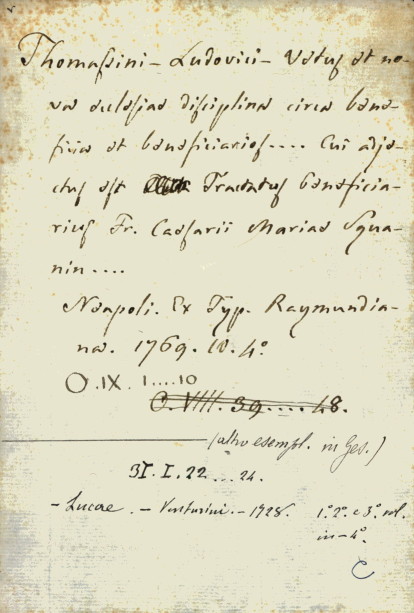 Thomaſsini - Ludovici - Vetuſ et no-
va eccleſiae diſciplina circa bene-
ficia et beneficiarioſ.... Cui adje-
ctuſ eſt Tractatuſ beneficia-
riuſ Fr. Caeſarii Mariae Sgua-
nin....
Neapoli. Ex Typ. Raymundia-
na. 1769. 4°
O.IX.1....10
O.VIII.39....48.
(altro esempl. in Ges.)
31.I.22....24.
- Lucae. - Venturini. - 1728. 1° 2° e 3° vol.
in - 4°.
C